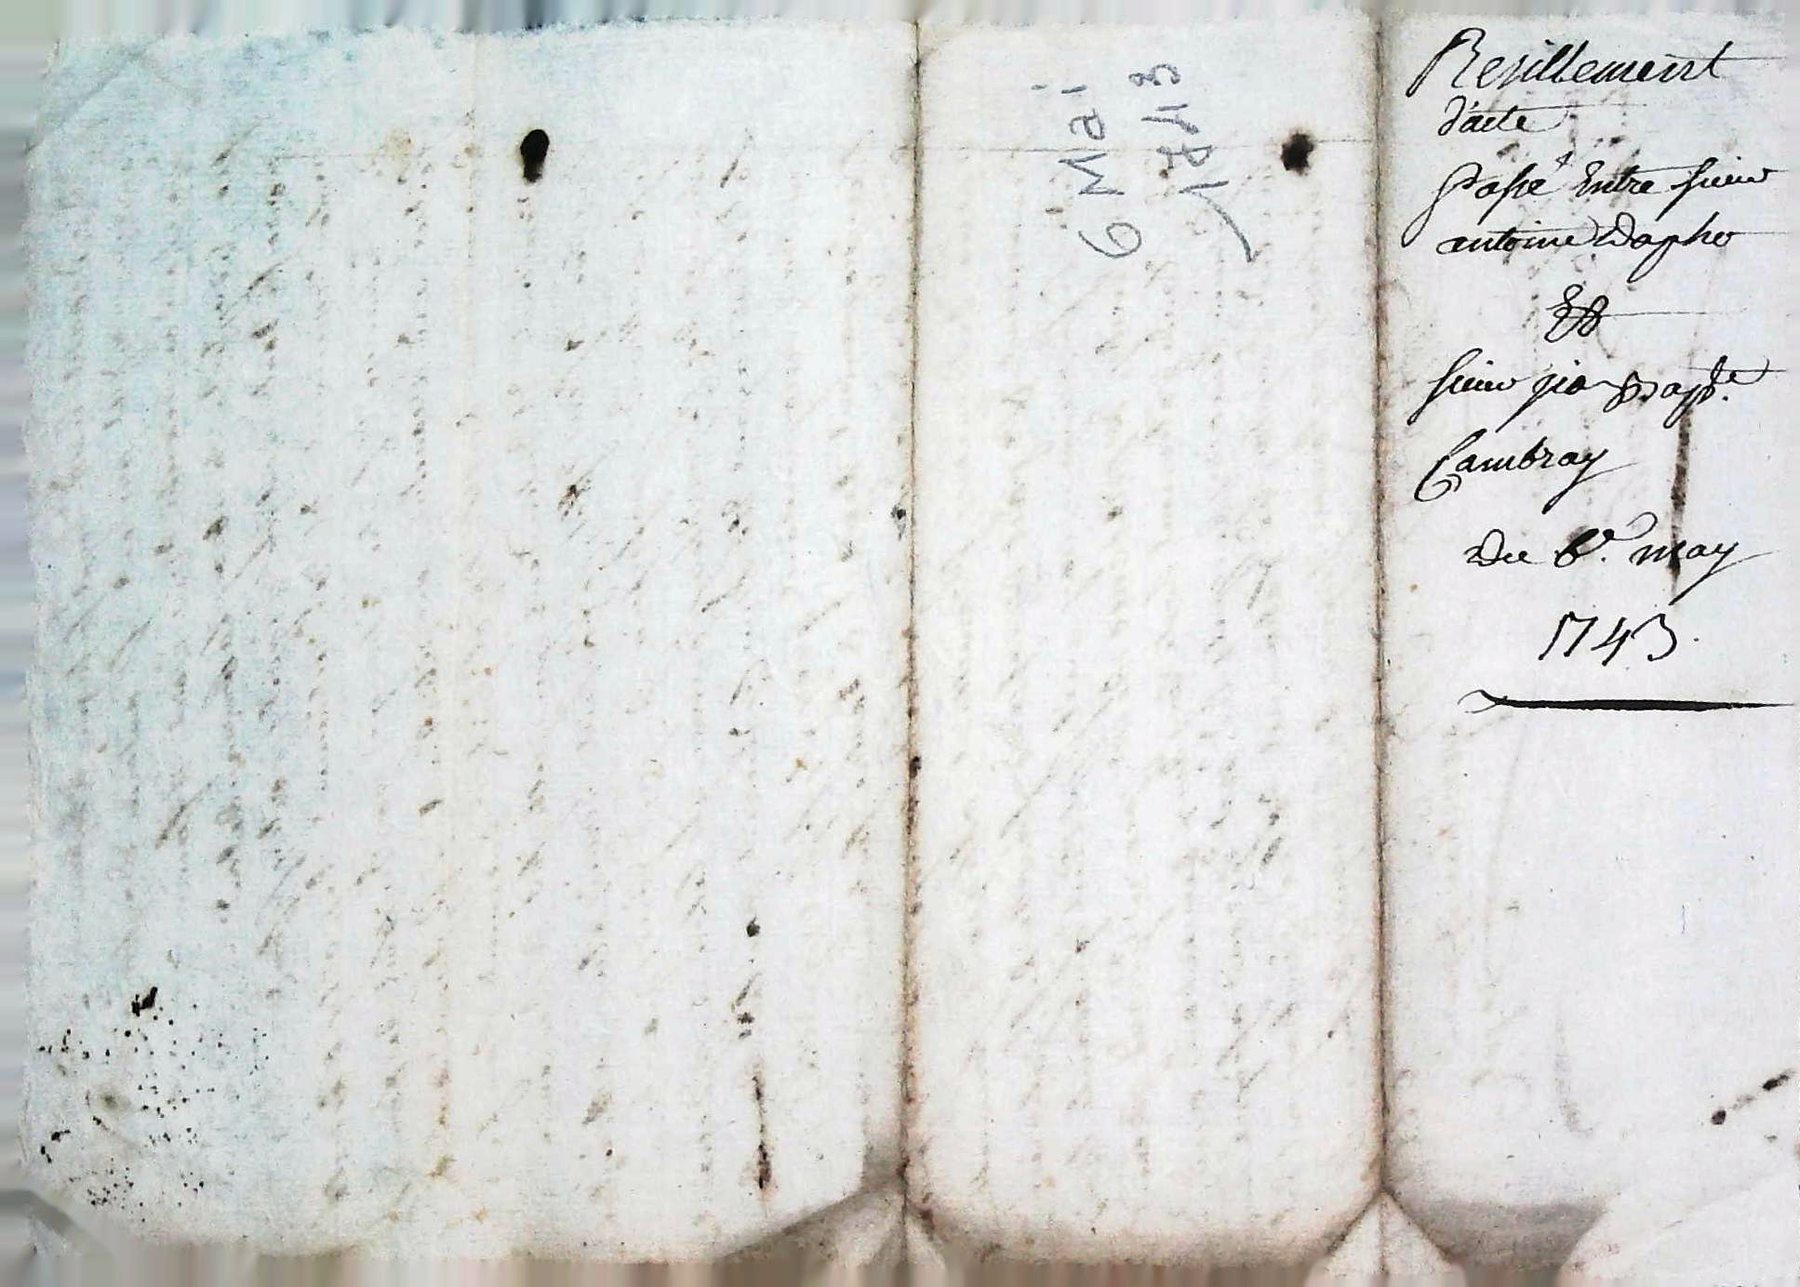 6 Mai
1743
Resillement
d'acte
Passé Entre sieur
antoine Dapho
Et
sieur jian Bapte.
Cambray
Du 6e. may
1743.